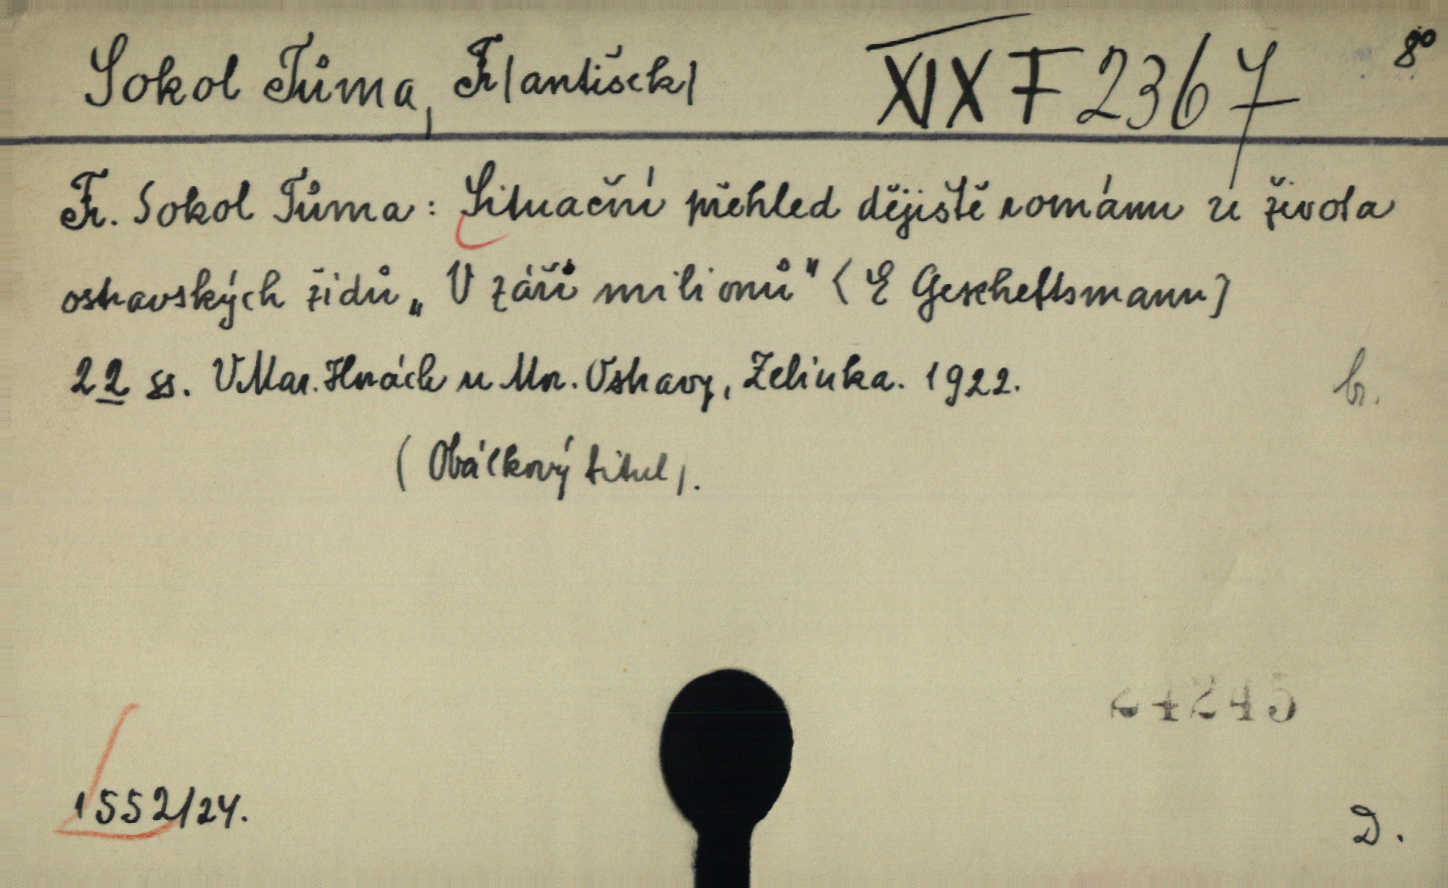 Sokol Tůma, Fr/antišek/ XIX F 2367 8°
Fr. Sokol Tůma: Situační přehled dějiště románu ze života
ostravských židů „V září milionů" (E Gescheftsmann)
22 ss. V Mar. Horách u Mor. Ostravy, Zelinka. 1922. br.
(Obálkový titul).
24245
1552/24. D.